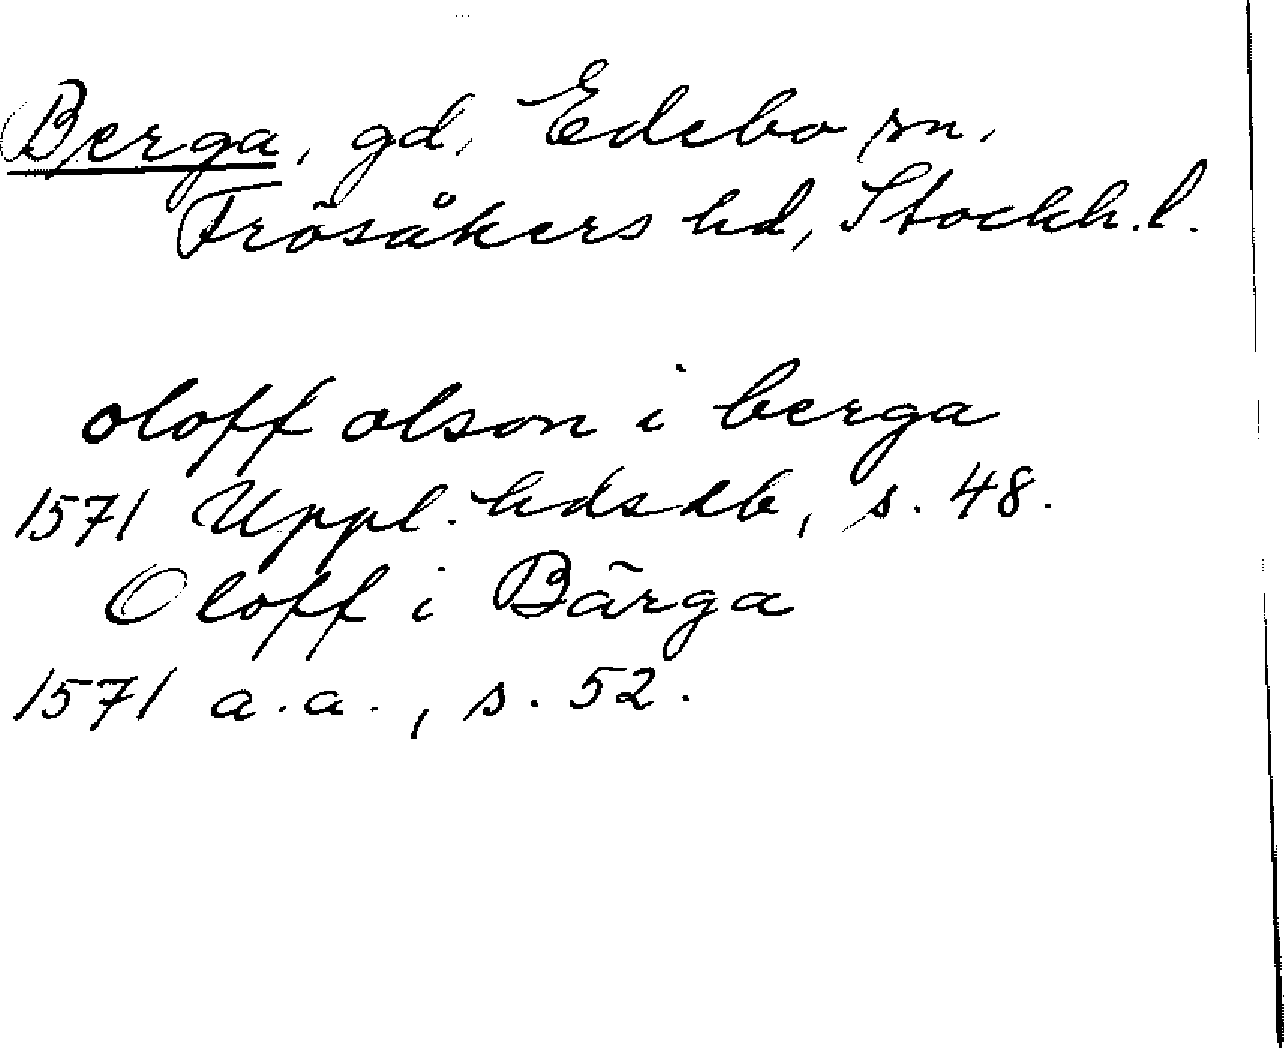 Berga, gd, Edebo sn,
Frösåkers hd, Stockh.l.
oloff olson i berga
1571 Uppl. hdskb, s. 48.
Oloff i Bärga
1571 a.a., s. 52.